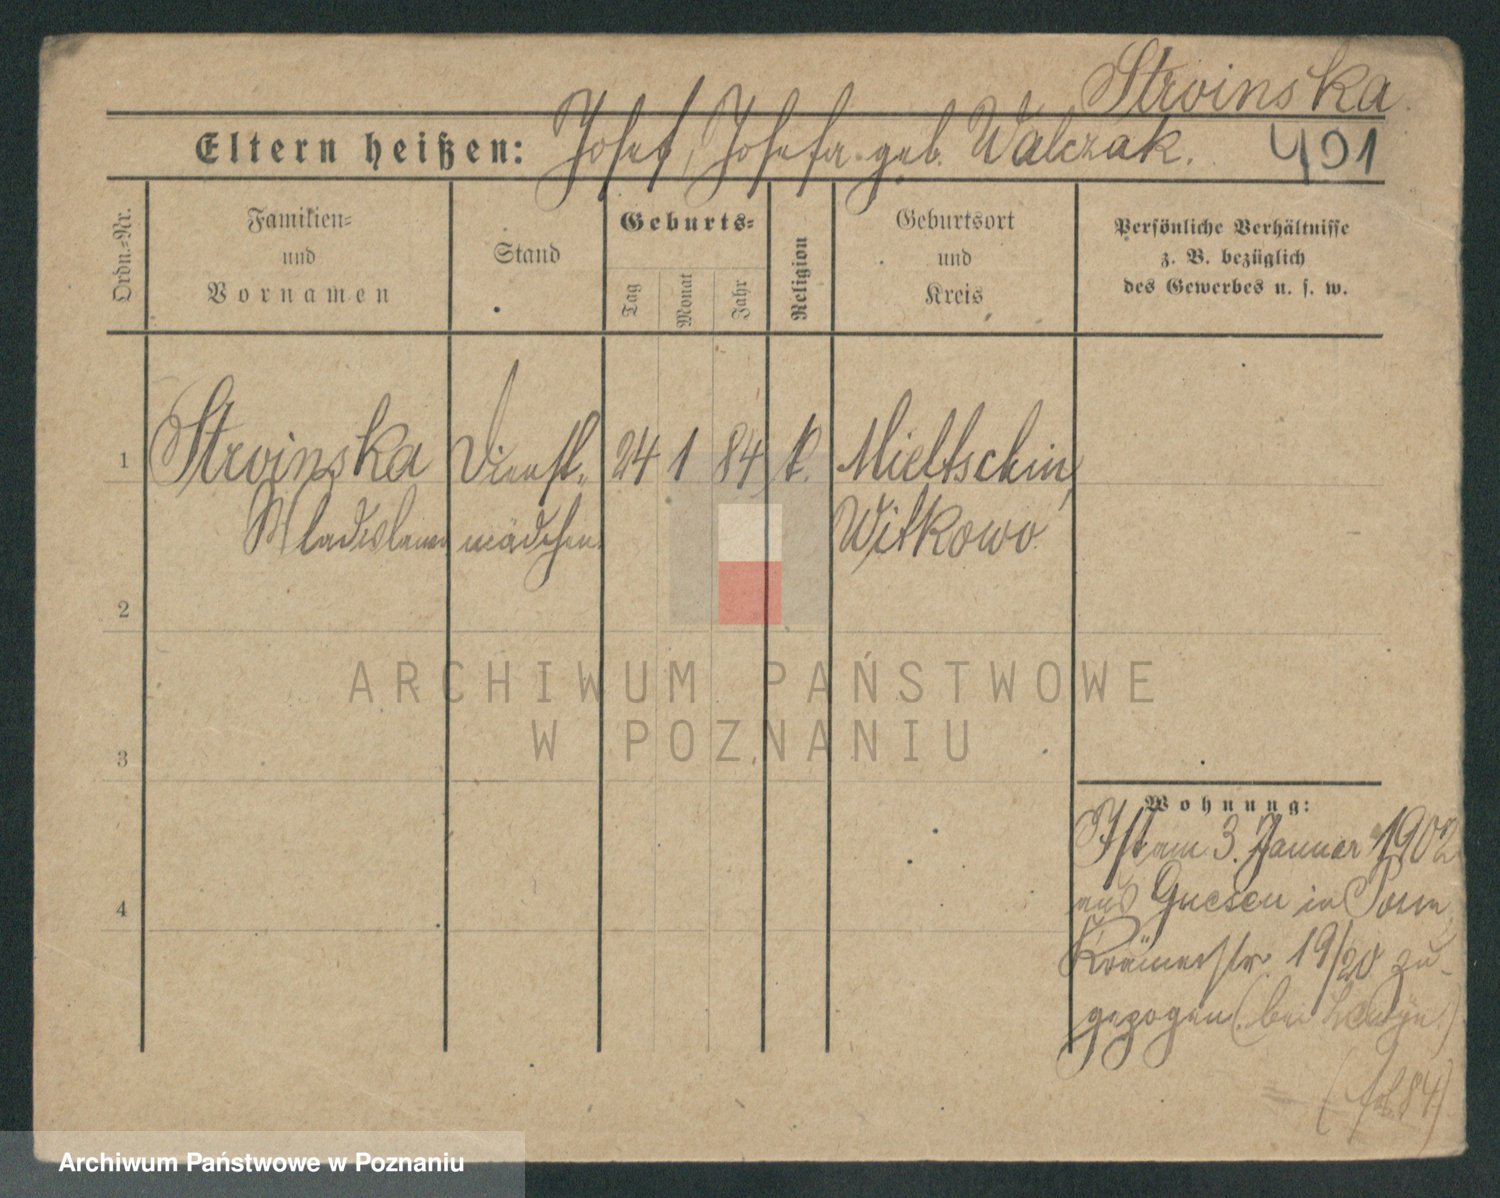 Stroinska
Eltern heißen: Josef, Josefa geb. Walczak. 401
Ordn.-Nr.
Familien-
und
Vornamen
Stand
Geburts-
Tag
Monat
Jahr
Religion
Geburtsort
und
Kreis
Persönliche Verhältnisse
z. B. bezüglich
des Gewerbes u. s. w.
1 Stroinska Dienst- 24 1 84 k. Mieltschin,
Wladislawa mädchen Witkowo
2
ARCHIWUM PAŃSTWOWE
W POZNANIU
3
Wohnung:
Ist am 3. Januar 1902
aus Gnesen in Posen,
4
Krämerstr. 19/20 zu-
gezogen (bei
84)
Archiwum Państwowe w Poznaniu